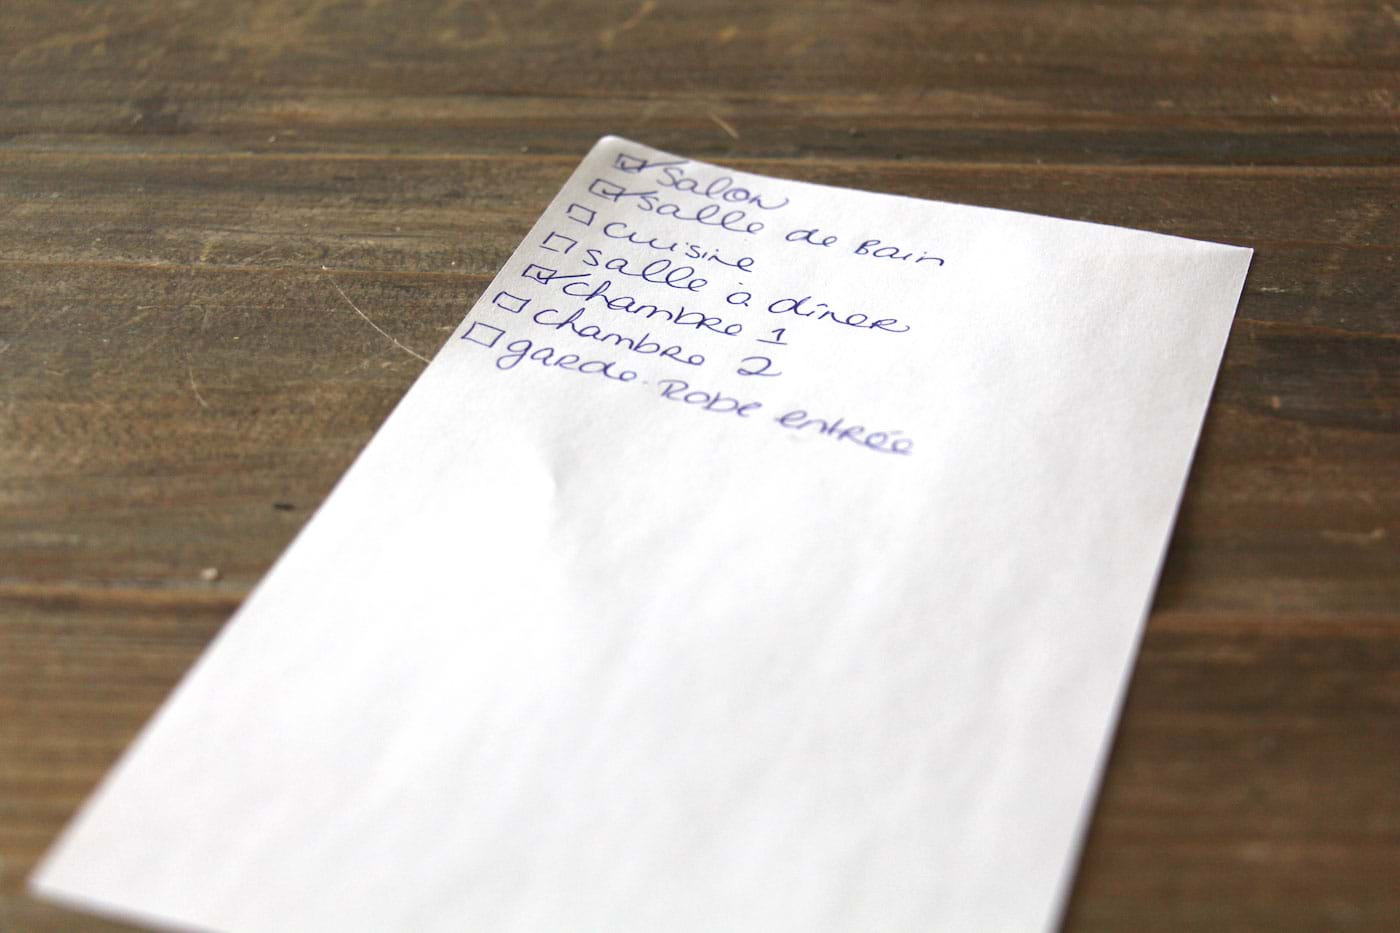 ☑ salon
☑ salle de Bain
☐ cuisine
☐ salle à dîner
☑ chambre 1
☐ chambre 2
☐ garde-Robe entrée